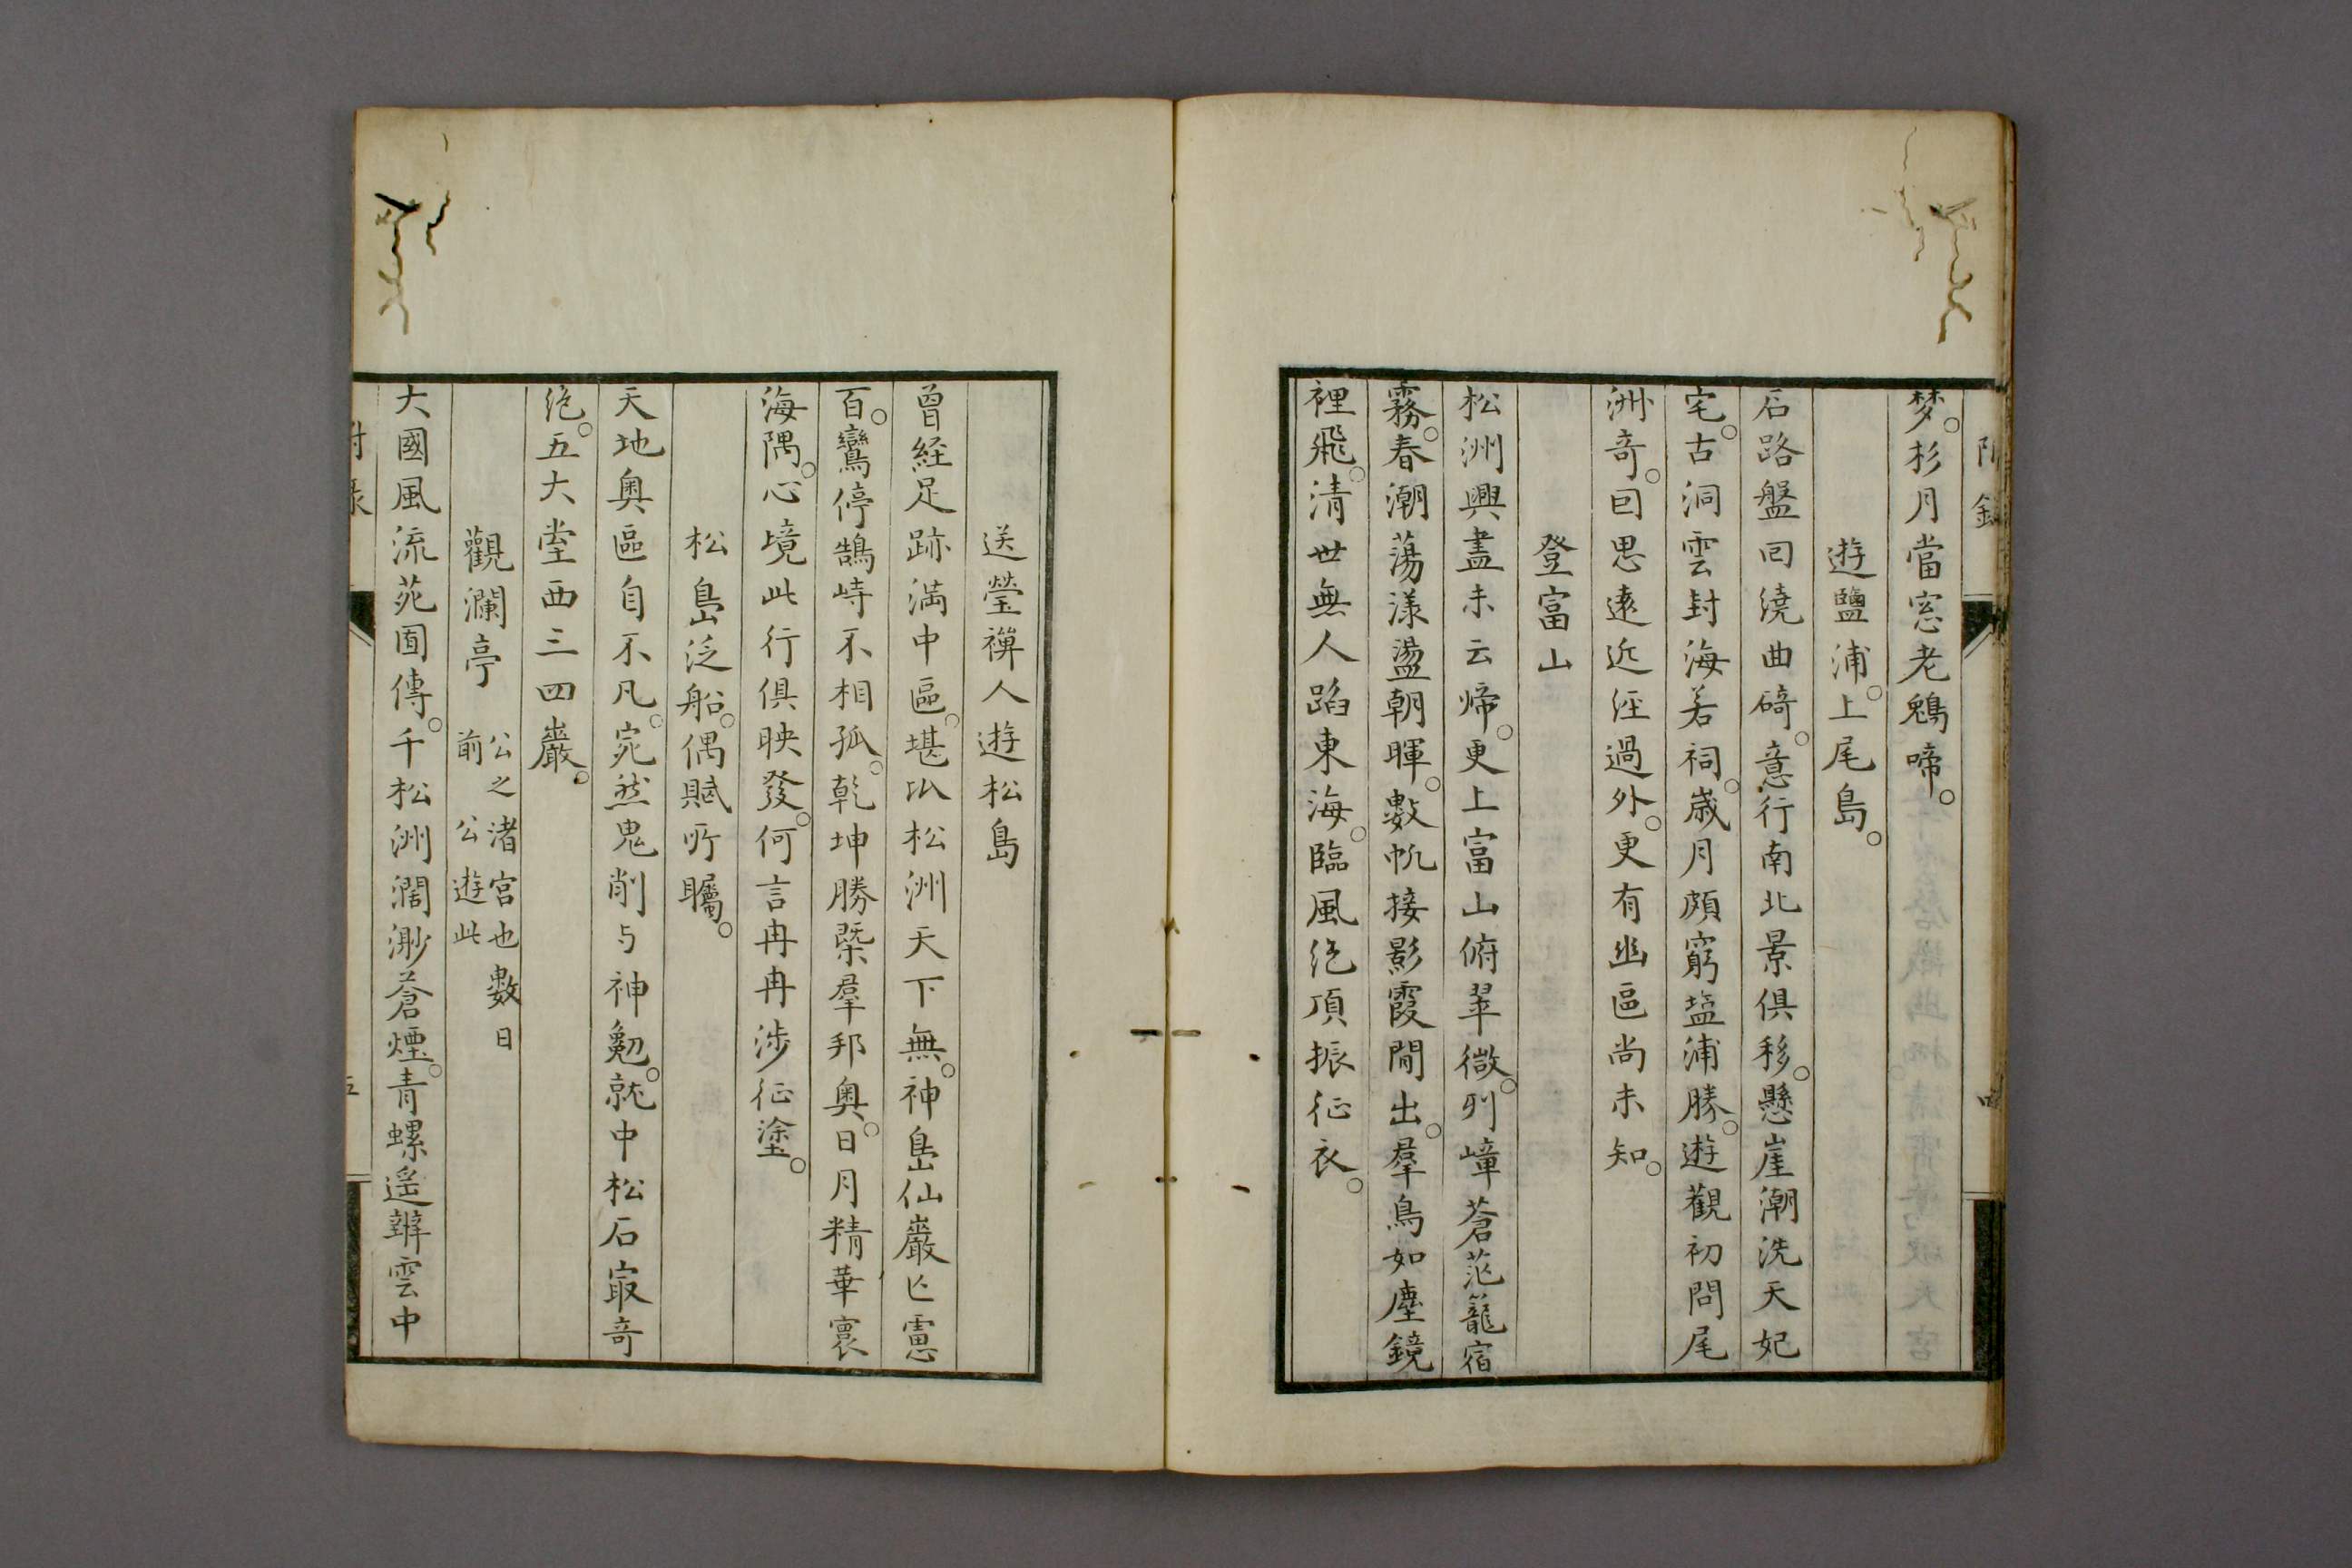 附錄
梦。杉月當窓老鵷啼。
遊鹽浦。上尾島。
石路盤回繞曲碕。意行南北景俱移。懸崖潮洗天妃
宅。古洞雲封海若祠。歳月頗窮塩浦勝。遊觀初問尾
洲奇。囘思遠近経過外。更有幽區尚未知。
登富山
松洲興盡未云歸。更上富山俯翠微。列嶂蒼茫籠宿
霧。春潮蕩漾盪朝暉。數帆接影霞間出。羣鳥如塵鏡
裡飛。清世無人蹈東海。臨風绝頂振征衣。
送瑩禅人遊松島
曾経足跡満中區。堪㕥松洲天下無。神島仙巖凡
百。鸞停鵠峙不相孤。乾坤勝槩羣邦奥。日月精華
海隅。心境此行俱映發。何言冉冉渉征塗。
松島泛船。偶賦所矚。
天地奥區自不凡。宛然鬼削与神剜。就中松石㝡奇
绝。五大堂西三四巖。
觀瀾亭 公之渚宮也數日前 公遊此
大國風流苑囿傳。千松洲濶渺蒼煙。青螺遥辨雲中
附录
五